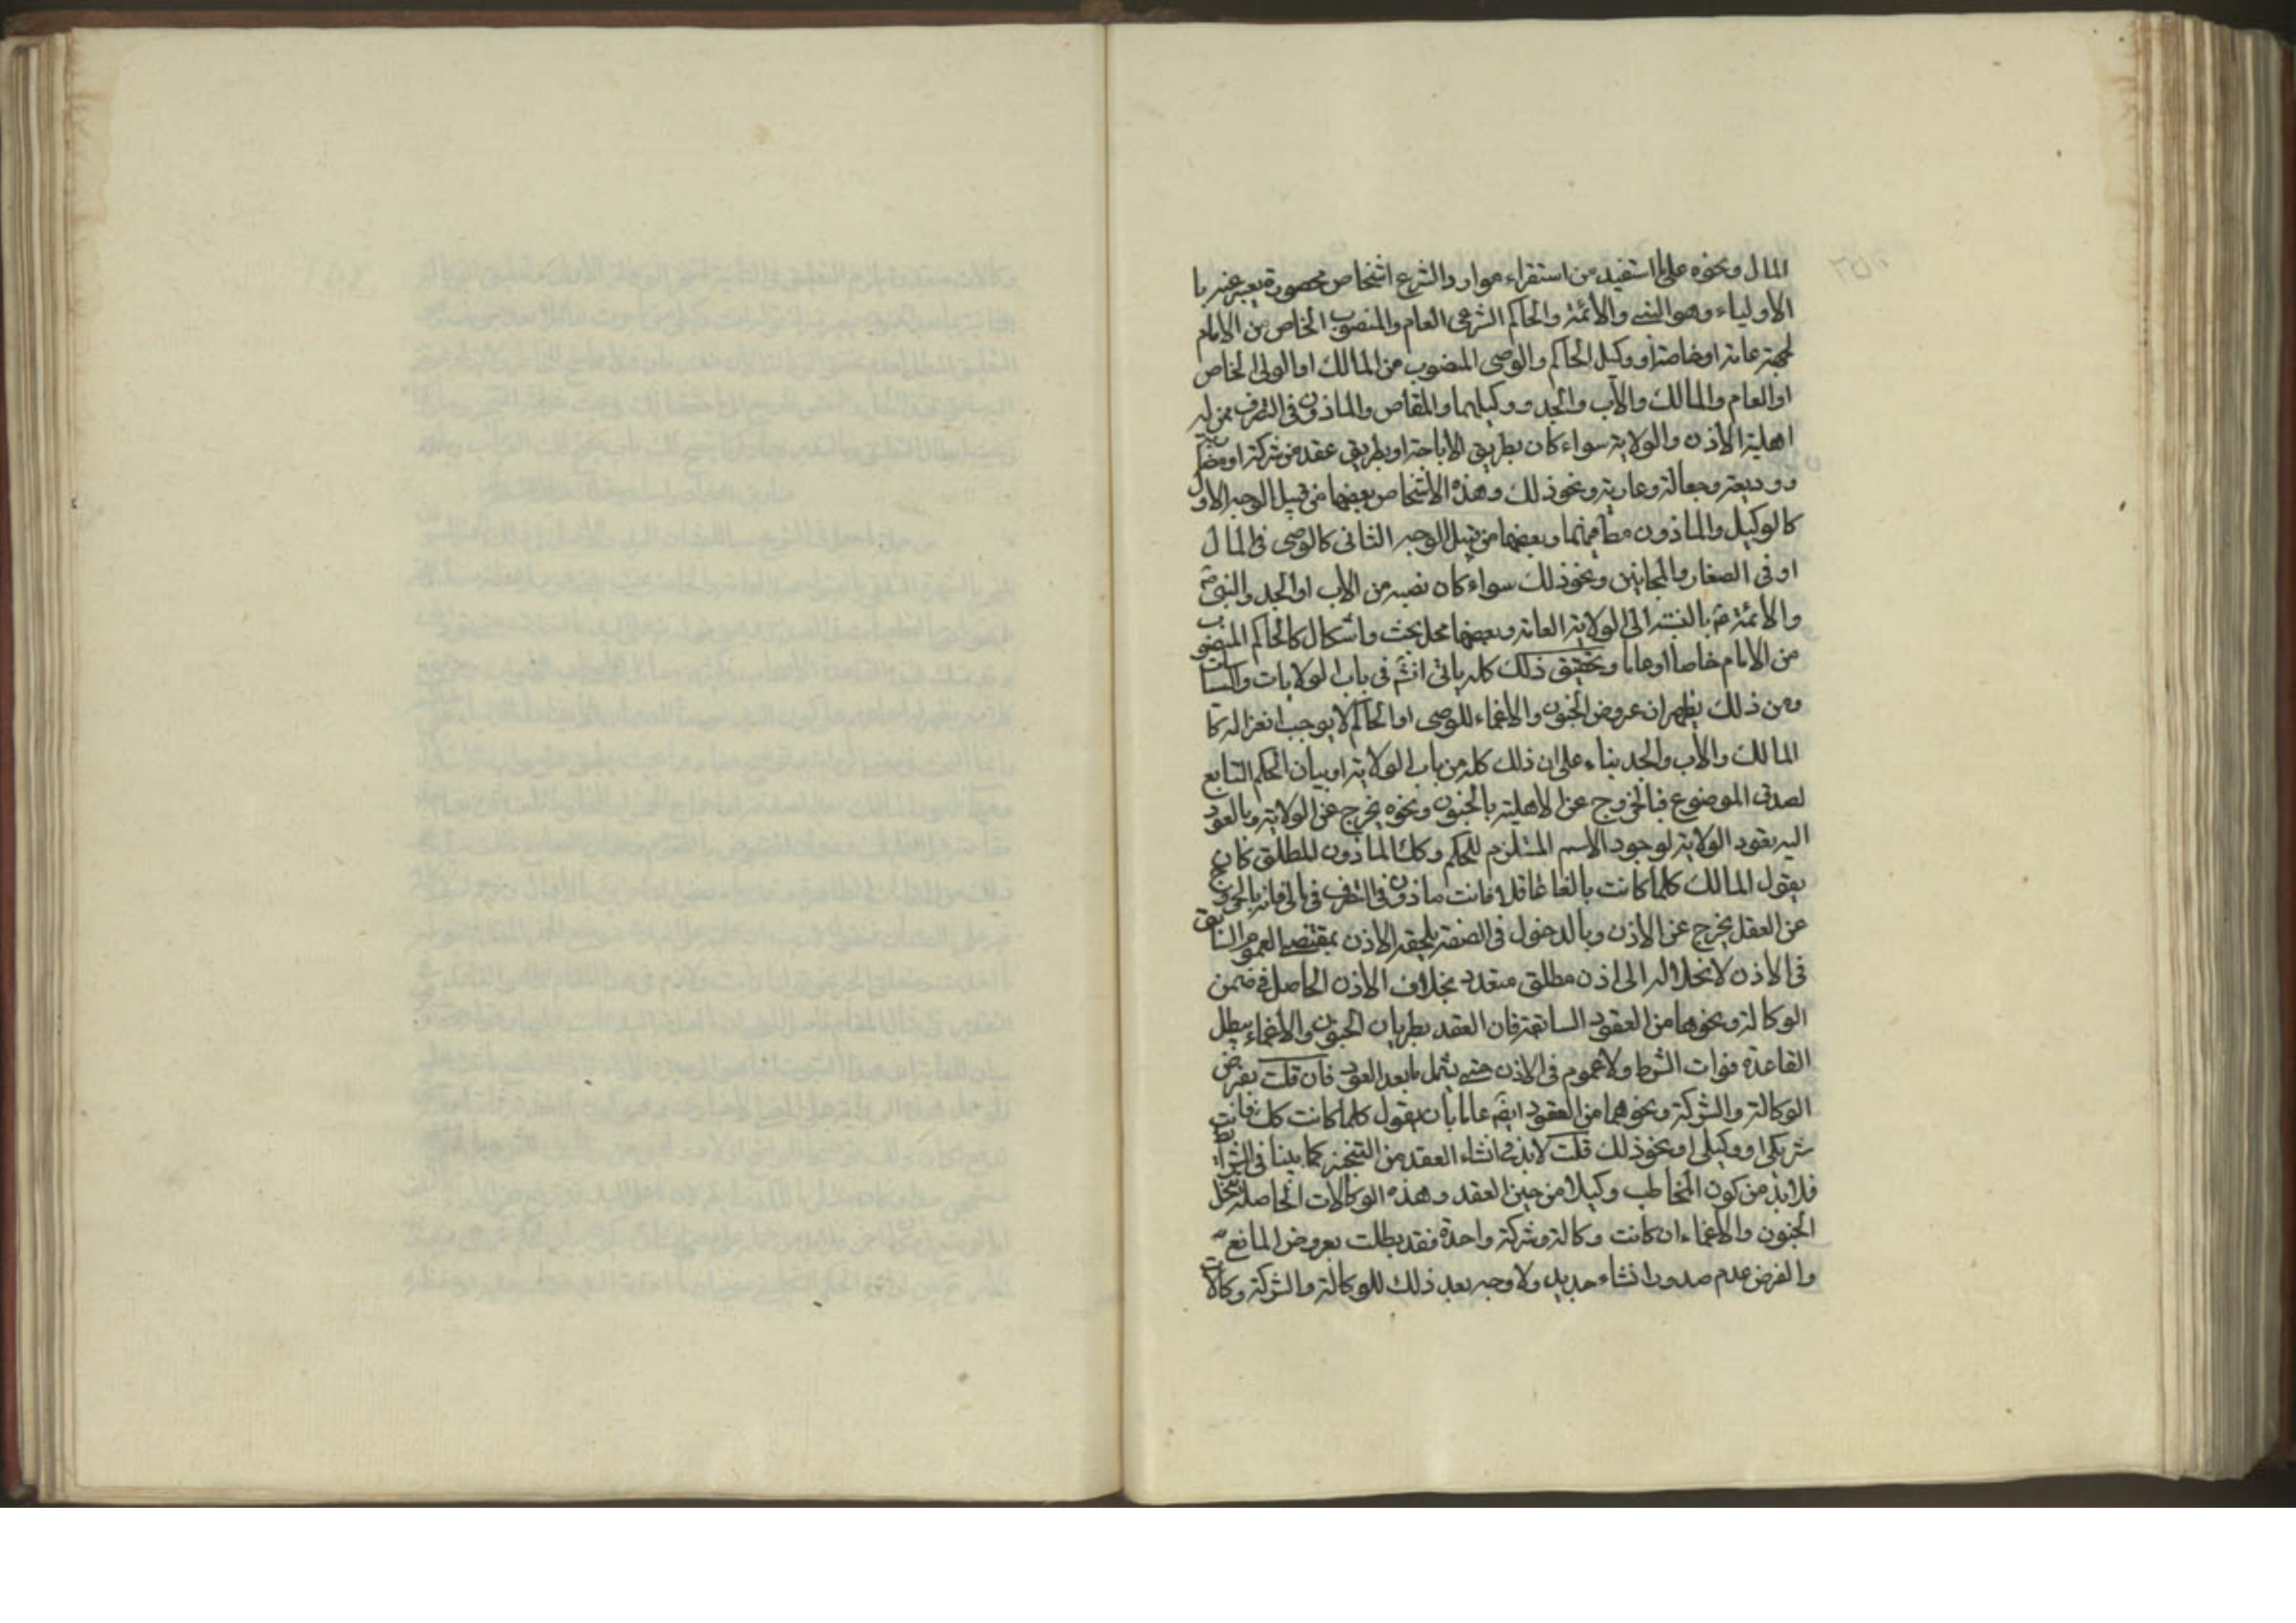 المال ونحوه على ما استفيد من استقراء موارد الشرع اشخاص محصورة يعبر عنهم با
الأولياء وهو النبي والأئمة والحاكم الشرعي العام والمنصوب الخاص من الامام
لجهة عامة او خاصة او وكيل الحاكم والوصي المنصوب من المالك او الولي الخاص
او العام والمالك والأب والجد ووكيلهما والمقاص والماذون في التصرف ممن له
اهلية الاذن والولاية سواء كان بطريق الاباحة او بطريق عقد من شركة او مضاربة
وديعة وجعالة وعارية ونحو ذلك وهذه الاشخاص بعضها من قبيل الوجه الاول
كالوكيل والماذون مطلقا وبعضها من قبيل الوجه الثاني كالوصي في المال
او في الصغار والمجانين ونحو ذلك سواء كان نصبه من الاب او الجد والنبي ص
والأئمة ع بالنسبة الى الولاية العامة وبعضها محل بحث واشكال كالحاكم المنصوب
من الامام خاصا او عاما وتحقيق ذلك كله ياتي انشم في باب الولايات والسياسات
ومن ذلك يظهر ان عروض الجنون والاغماء للوصي او الحاكم لا يوجب انعزاله كما
المالك والأب والجد بناء على ان ذلك كله من باب الولاية او بيان الحكم التابع
لصدق الموضوع فبالخروج عن الاهلية بالجنون ونحوه يخرج عن الولاية وبالعود
اليه يعود الولاية لوجود الاسم المستلزم للحكم وكك الماذون المطلق كان
يقول المالك كلما كانت بالغا عاقلا فانت ماذون في التصرف في مالي فانه بالخروج
عن العقل يخرج عن الاذن وبالدخول في الصفة يلحقه الاذن بمقتضى العموم السابق
في الاذن لانحلاله الى اذن مطلق متعدد بخلاف الاذن الحاصل في ضمن
الوكالة ونحوها من العقود السابقة فان العقد بطريان الجنون والاغماء يبطل
القاعدة فوات الشرط ولا عموم في الاذن حتى يشمل ما بعد العود فان قلت يفرض
الوكالة والشركة ونحوهما من العقود ايضم عاما بان يقول كلما كانت كك فانت
شريكي او وكيلي او نحو ذلك قلت لابد في انشاء العقد من التنجيز كما بينا في الشرائط
فلابد من كون المخاطب وكيلا من حين العقد وهذه الوكالات الحاصلة بتخلل
الجنون والاغماء ان كانت وكالة وشركة واحدة فقد بطلت بعروض المانع
والفرض عدم صدور انشاء جديد ولا وجه بعد ذلك للوكالة والشركة وكالات